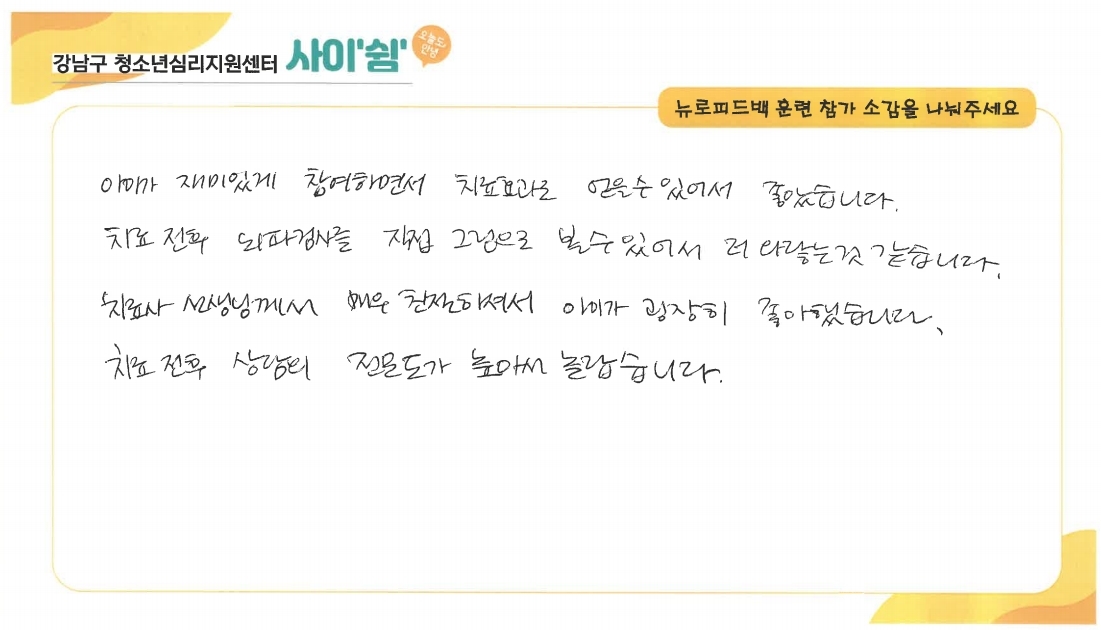 강남구 청소년심리지원센터 사이'쉼' 오늘도 안녕
뉴로피드백 훈련 참가 소감을 나눠주세요
아이가 재미있게 참여하면서 치료효과도 얻을 수 있어서 좋았습니다.
치료 전후 뇌파검사를 직접 그림으로 볼 수 있어서 더 와닿는 것 같습니다.
치료사 선생님께서 매우 친절하셔서 아이가 굉장히 좋아했습니다.
치료 전후 상담의 전문도가 높아서 놀랍습니다.